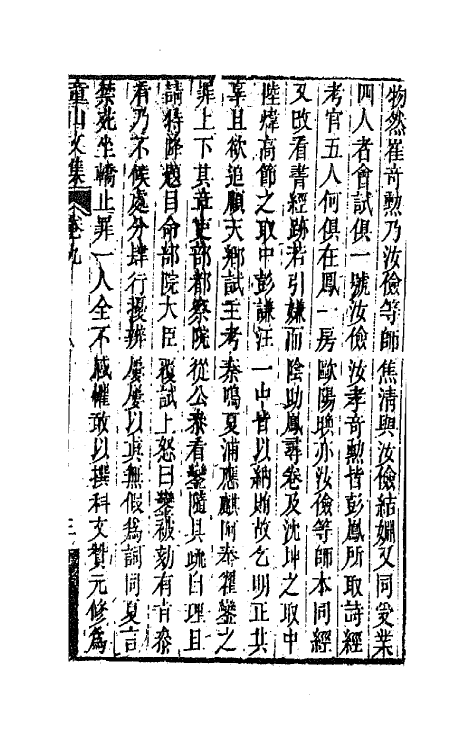 物然崔奇勲乃汝儉等師焦清與汝儉結姻又同受業
四人者會試俱一號汝儉汝孝奇勲皆彭鳳所取詩經
考官五人何俱在鳳一房歐陽㬇亦汝儉等師本同經
又改看書經跡若引嫌而陰助鳳尋卷及沈坤之取中
陸煒高節之取中彭謙汪一中皆以納賄故乞明正其
辜且欲追順天鄉試主考秦鳴夏浦應麒阿泰翟鑾之
罪上下其章吏部都察院從公叅看鑾隨具疏自理且
請特降題目命部院大臣覆試上怒曰鑾被劾有旨叅
看乃不候處分肆行擾辨屢屢以真無假爲詞同夏言
禁苑坐轎止罪一人全不感懼敢以撰科文贊元修爲
童山文集 卷九 三